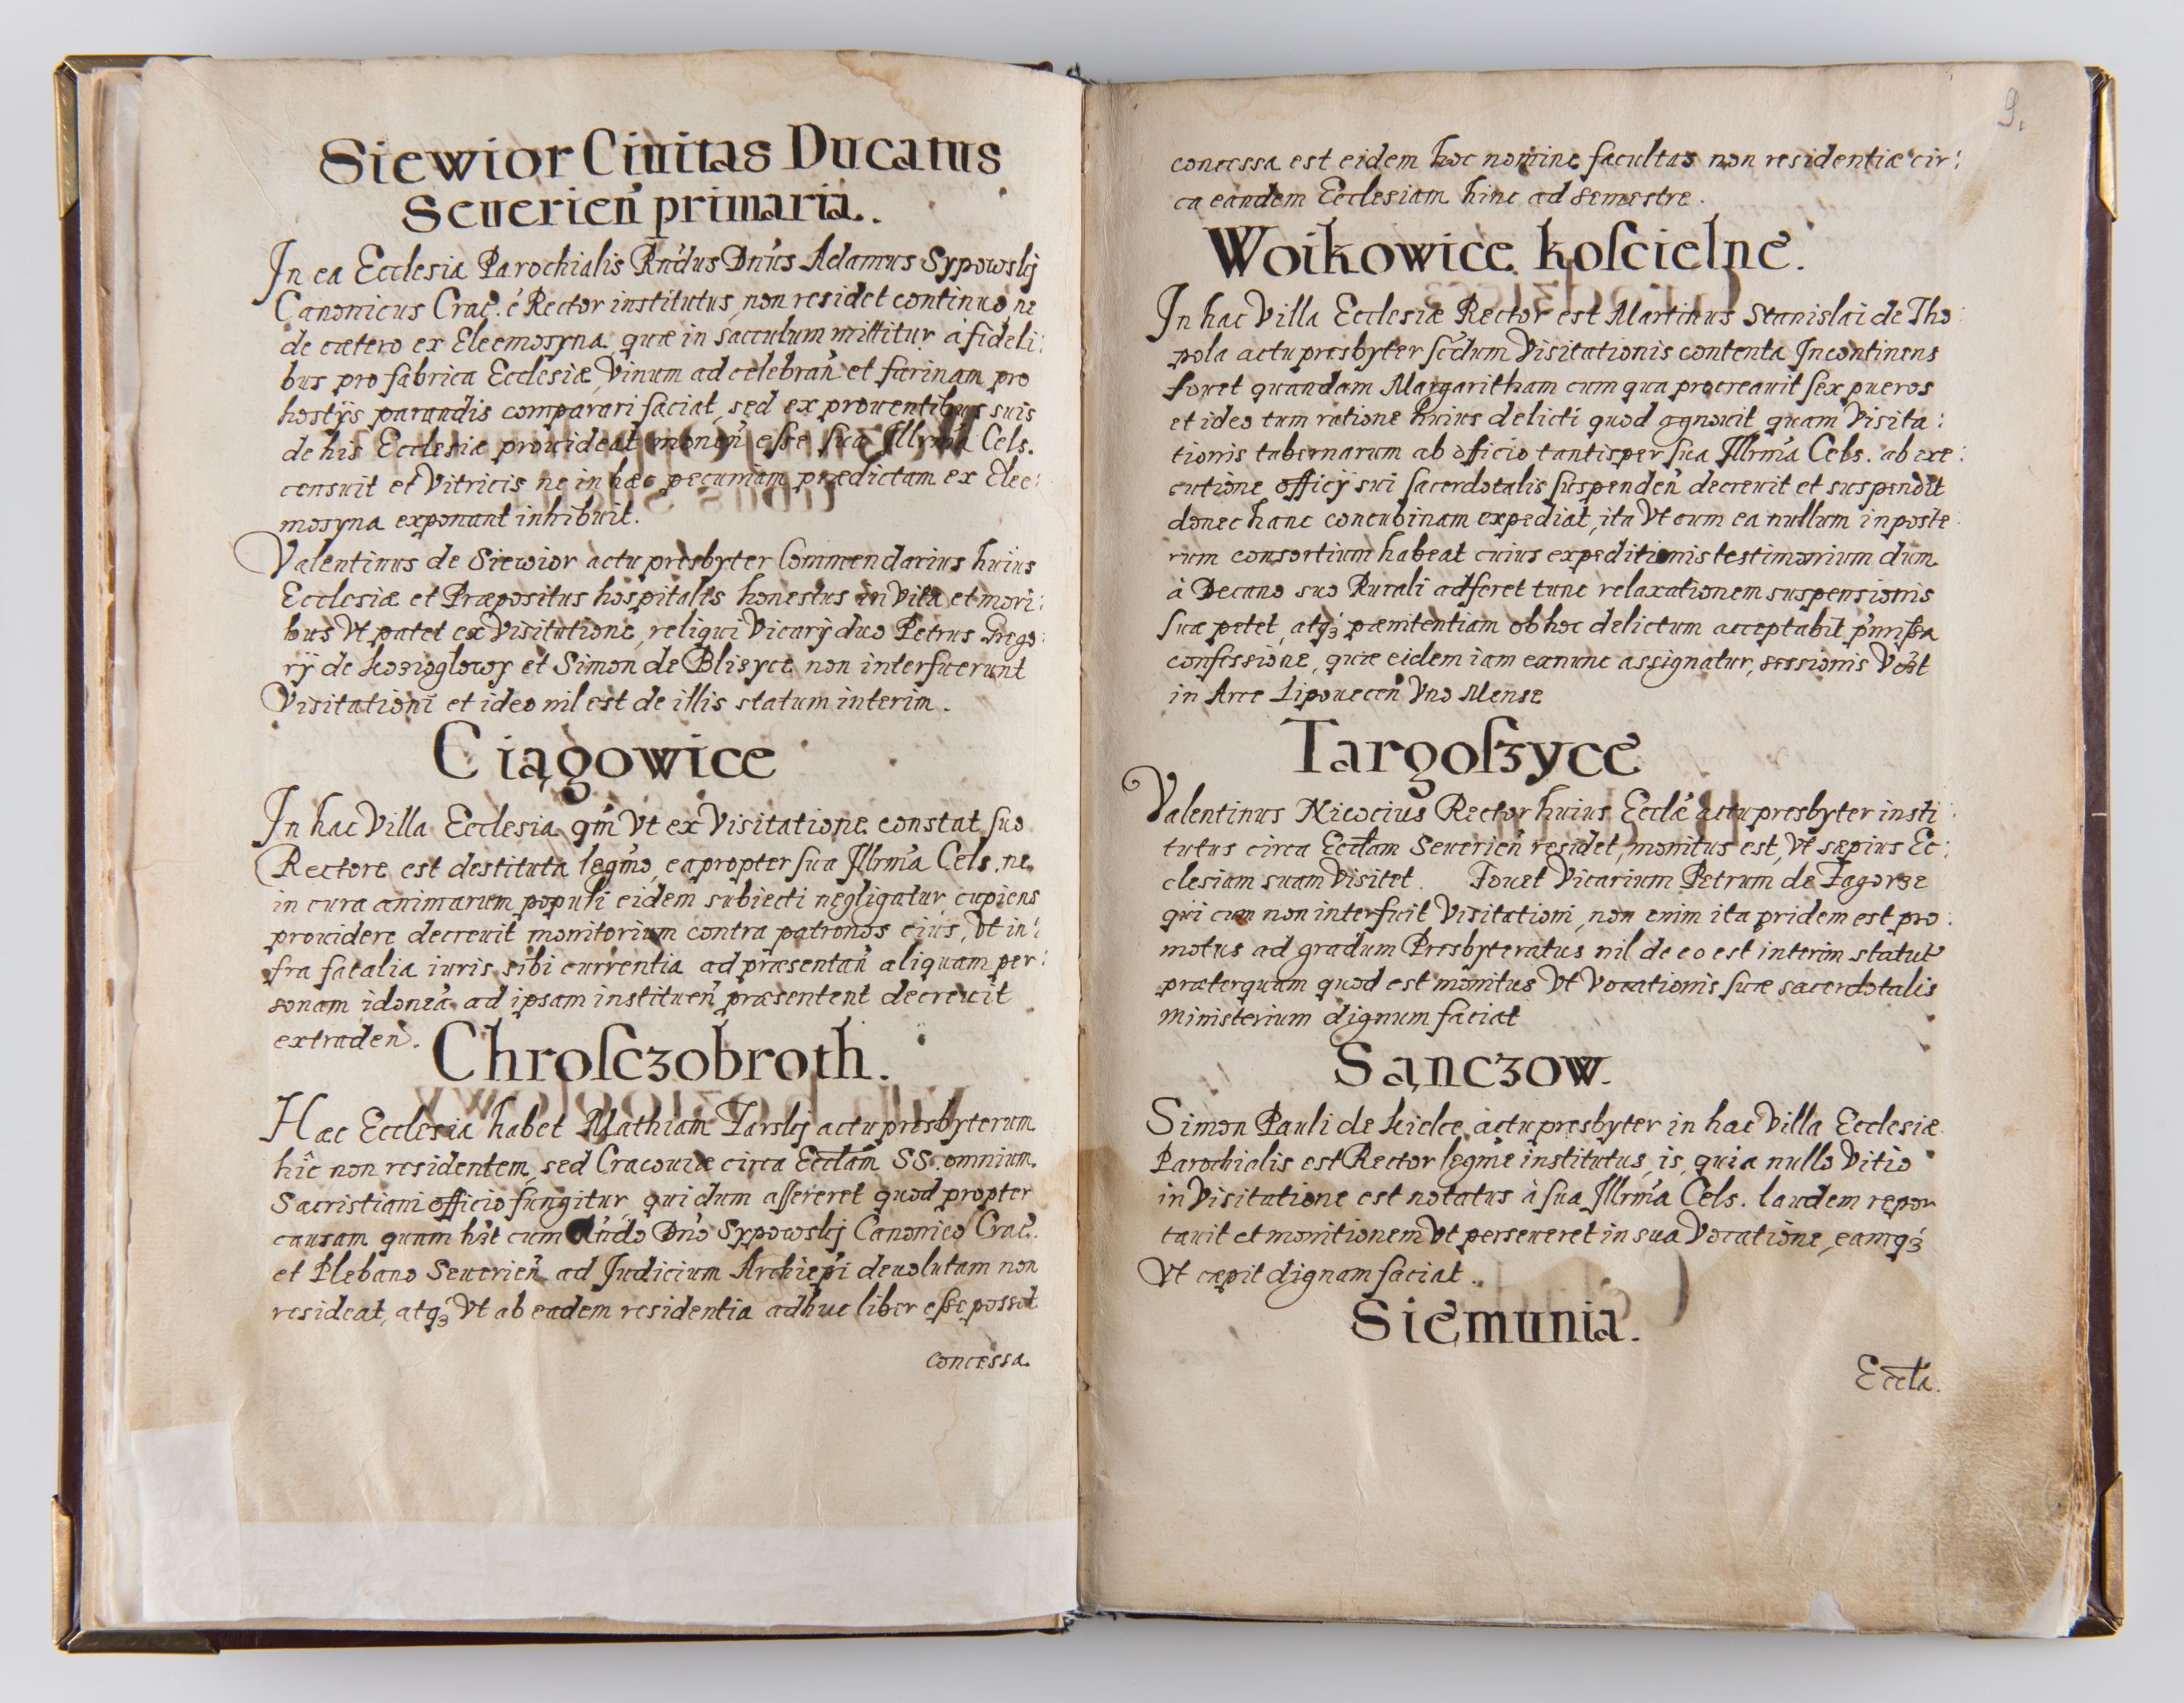 Siewior Ciuitas Ducatus
Seuerień primaria.
In ea Ecclesia Parochialis Rńdus Dńus Adamus Sypowskj
Canonicus Crac. é Rector institutus, non residet continuo ne
de cætero ex Eleemosyna quæ in sacculum mittitur à fideli:
bus pro fabrica Ecclesiæ, Vinum ad celebrań et farinam pro
hostÿs parandis comparari faciat, sed ex prouentibus suis
de his Ecclesiæ prouideat monen̄ eſse sua Jllrm̄a Cels.
censuit et Vitricis ne in hæc pecuniam prædictam ex Elee:
mosyna exponant inhibuit.
Valentinus de Siewior actu presbyter Commendarius huius
Ecclesiæ et Præpositus hospitalis honestus in Vita et mori:
bus Vt patet ex Visitatione, reliqui Vicarÿ duo Petrus Grego:
rÿ de kozioglowy et Simon de Blisyce non interfuerunt
Visitationi et ideo nil est de illis statum interim.
Ciągowice
In hac Villa Ecclesia qm̄ Vt ex Visitatione constat suo
Rectore est destituta legm̄o, eapropter sua Jllrm̄a Cels. ne
in cura animarum populi eidem subiecti negligatur, cupiens
prouidere decreuit monitorium contra patronos eius, Vt in:
fra fatalia iuris sibi currentia ad præsentań aliquam per:
sonam idoneā ad ipsam instituen̄ præsentent decreuit
extraden̄.
Chroſcʒobroth.
Hæc Ecclesia habet Mathiam Tarskj actu presbyterum
hîc non residentem, sed Cracouiæ circa Eccła̅m SS. omnium
Sacristiani officio fungitur, qui dum aſsereret quod propter
causam quam hēt cum Rńdo Dńo Sypowskj Canonico Crac.
et Plebano Seuerień ad Judicium Archiepi deuolutam non
resideat, atqʒ Vt ab eadem residentia adhuc liber eſse posset
concessa.
9.
concessa est eidem hoc nomine facultas non residentiæ cir:
ca eandem Ecclesiam hinc ad semestre.
Woikowice koſcielne.
In hac Villa Ecclesiæ Rector est Martinus Stanislai de Tho:
pola actu presbyter sc̄dum Visitationis contenta Incontinens
fouet quandam Margaritham cum qua procreauit sex pueros
et ideo tum ratione huius delicti quod agnouit quam Visita:
tionis tabernarum ab officio tantisper sua Jllrm̄a Cels. ab exe:
cutione officÿ sui sacerdotalis suspenden̄ decreuit et suspendit
donec hanc concubinam expediat, ita Vt cum ea nullum in poste
rum consortium habeat cuius expeditionis testimonium dum
à Decano suo Rurali adferet tunc relaxationem suspensionis
suæ petet, atqʒ pænitentiam ob hoc delictum acceptabit
confessione, quæ eidem iam exnunc assignatur, sessionis
in Arce Lipouecen̄ Vno Mense
Targoſʒyce
Valentinus Nicocius Rector huius Eccłæ actu presbyter insti:
tutus circa Eccłam Seuerień residet, monitus est, Vt sæpius Ec:
clesiam suam Visitet. Fouet Vicarium Petrum de Zagorze
qui cum non interfuit Visitationi, non enim ita pridem est pro:
motus ad gradum Presbyteratus nil de eo est interim statut̄
præterquam quod est monitus Vt Vocationis suæ sacerdotalis
ministerium dignum faciat
Sąncʒow.
Simon Pauli de Kielce actu presbyter in hac Villa Ecclesiæ
Parochialis est Rector legm̄e institutus, is, quia nullo Vitio
in Visitatione est notatus à sua Jllrm̄a Cels. laudem repor
tauit et monitionem Vt perseueret in sua Vocatione, eamqʒ
Vt cæpit dignam faciat.
Siemunia.
Eccła.